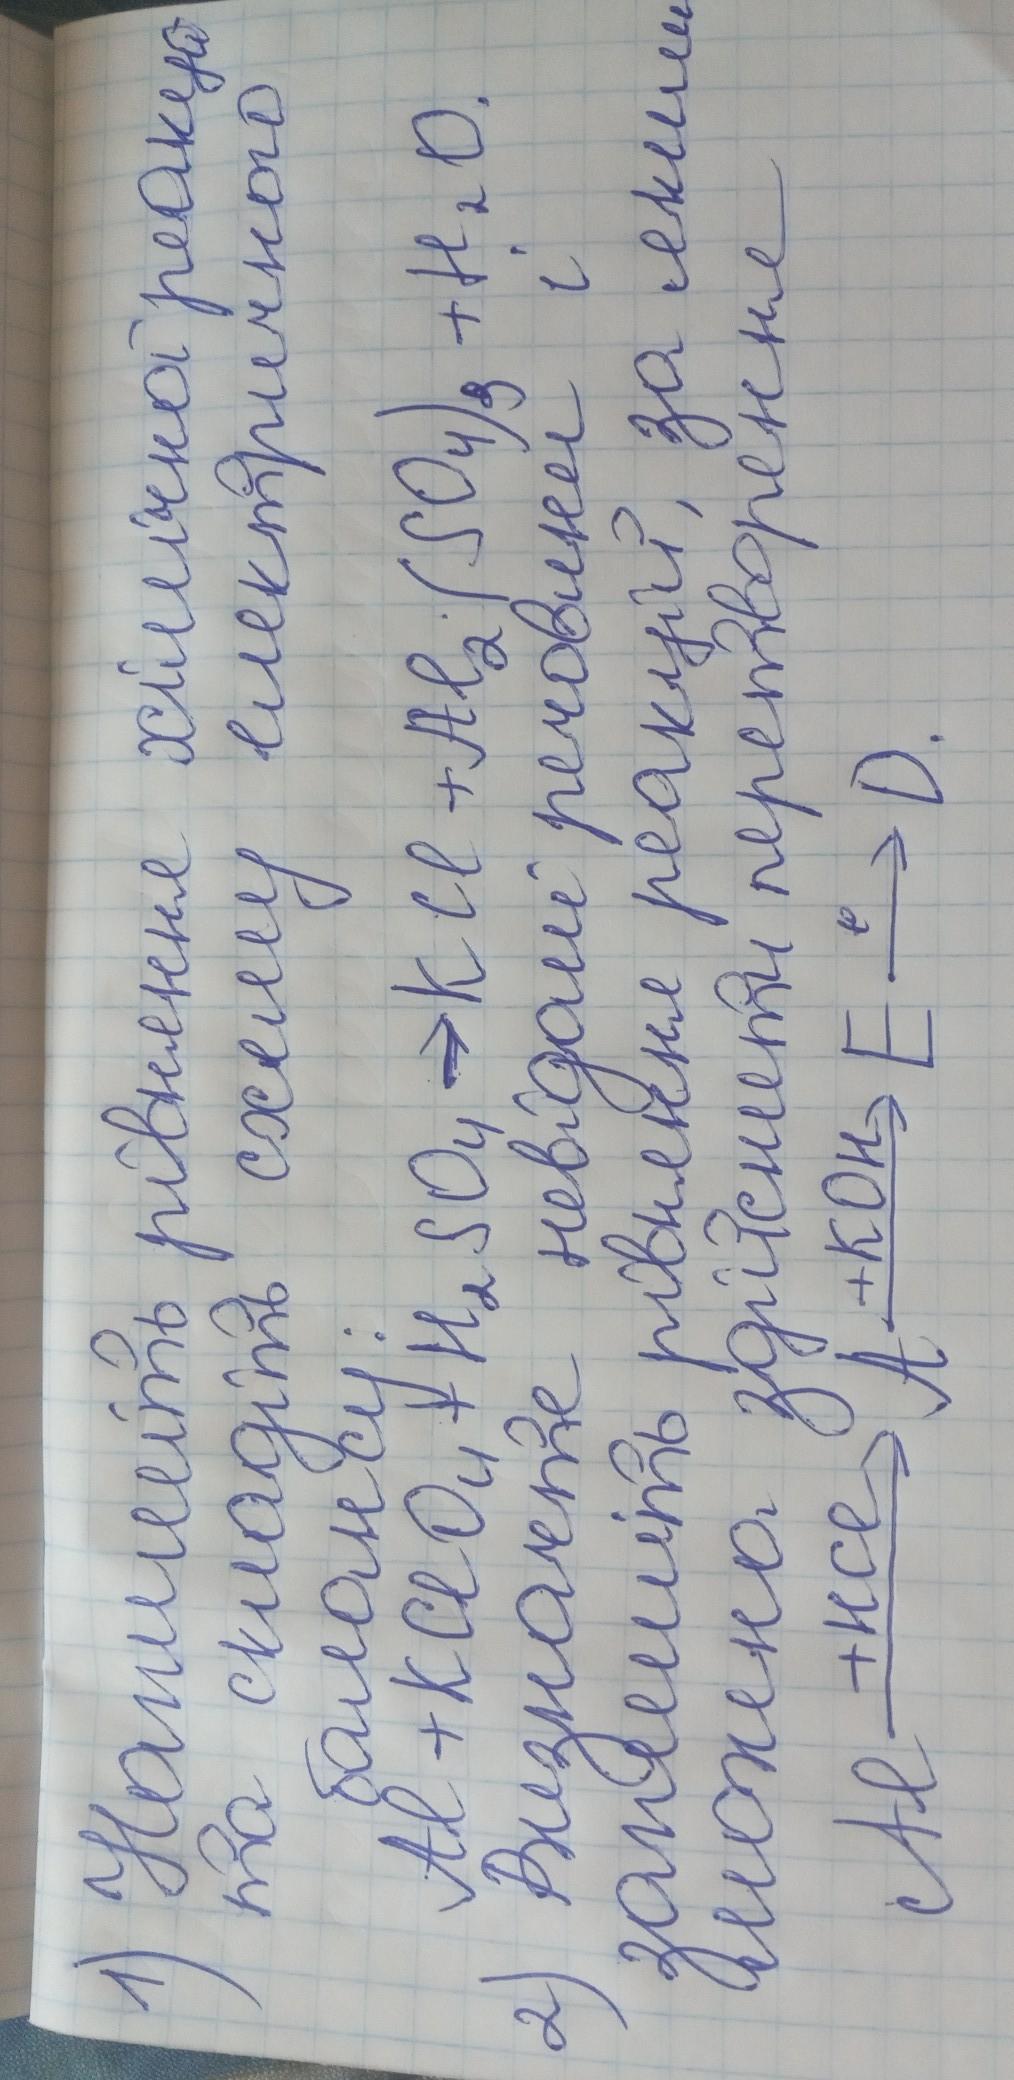 1) Напишіть рівняння хімічної реакції
та складіть схему електричного
балансу:
Al + KClO4 + H2SO4 → KCl + Al2(SO4)3 + H2O.
2) Визначте невідомі речовини і
запишіть рівняння реакцій, за якими
можна здійснити перетворення
Al +HCl→ A +KOH→ E t→ D.